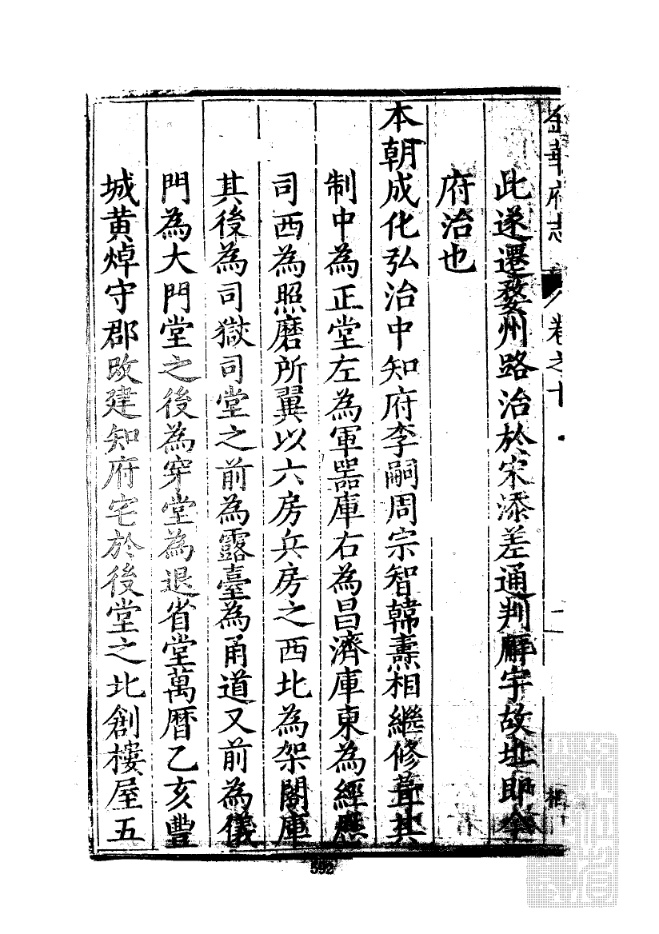 金華府志 卷之十
此遂還婺州路治於宋添差通判廨宇故址即今
府治也
本朝成化弘治中知府李嗣周宗智韓燾相繼修葺其
制中為正堂左為軍器庫右為昌濟庫東為經歷
司西為照磨所翼以六房兵房之西北為架閣庫
其後為司獄司堂之前為露臺為甬道又前為儀
門為大門堂之後為穿堂為退省堂萬曆乙亥豐
城黄焯守郡改建知府宅於後堂之北創樓屋五
592